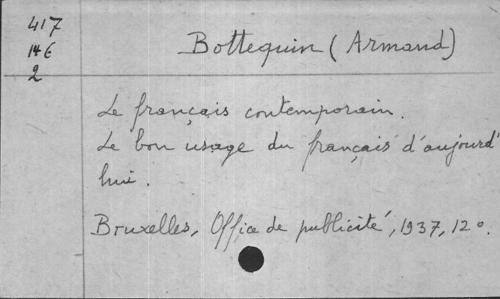 417
14 E
2
Bottequin (Armand)
Le français contemporain.
Le bon usage du français d'aujourd'
hui.
Bruxelles, Office de publicité, 1937, 12°.